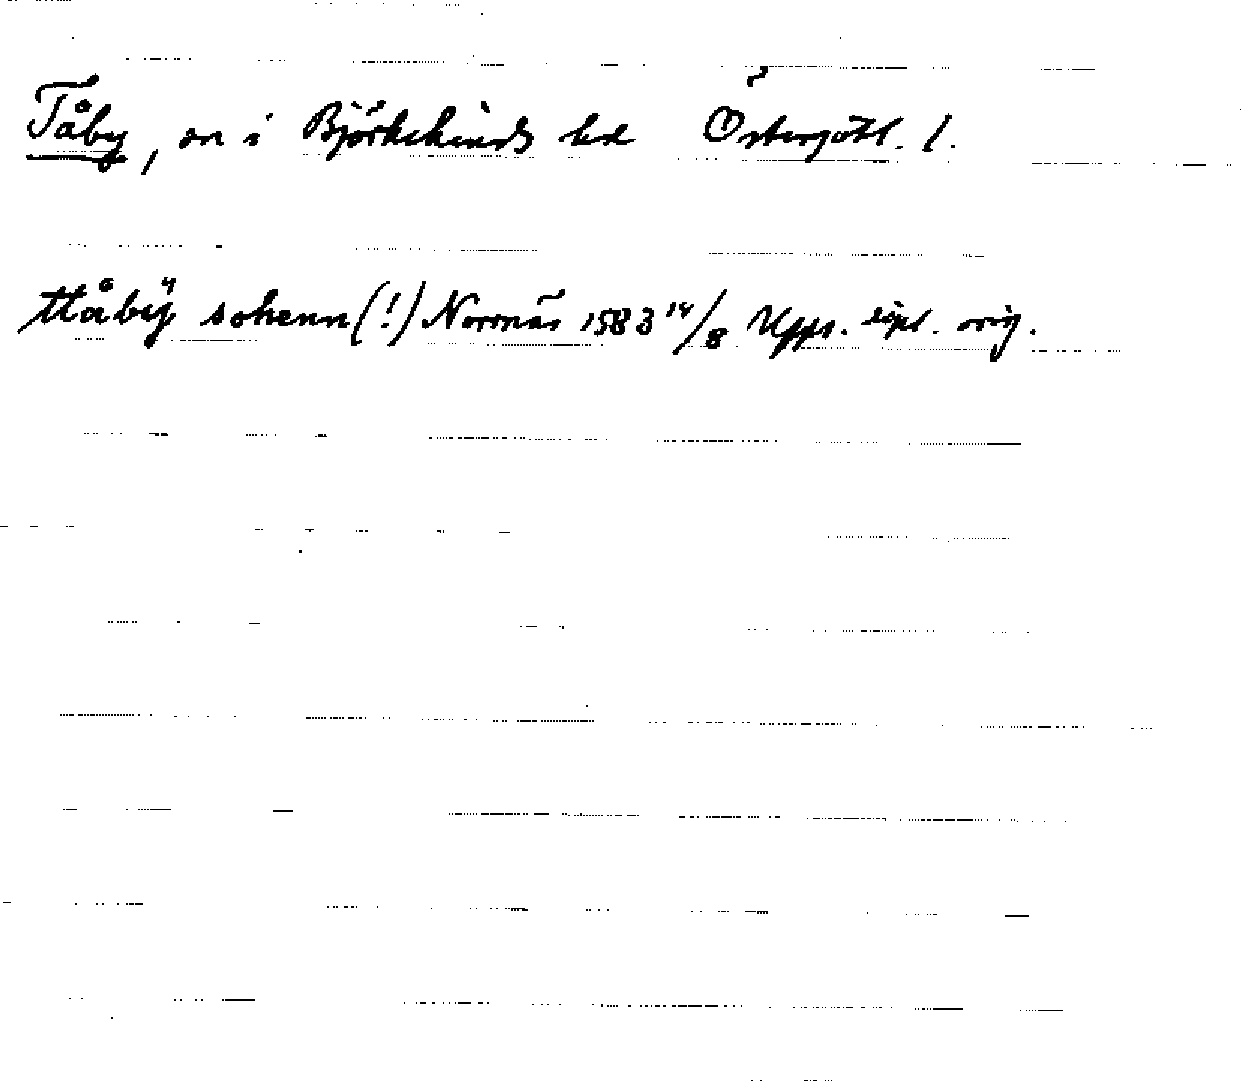 Tåby, sn i Björkekinds hd Östergötl. l.
ttåbÿ sokenn (!) Norrnäs 1583 14/8 Upps. dipl. orig.